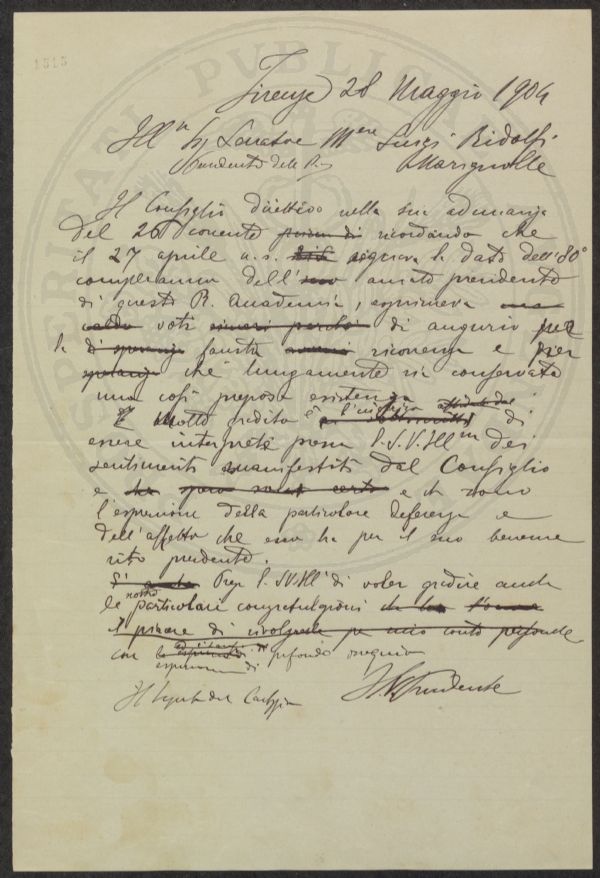 1515
Firenze 28 Maggio 1904
Ill<sup>re</sup> Sig. Senatore M<sup>ese</sup> Luigi Ridolfi
Presidente della
Marignolle
Il Consiglio direttivo nella sua adunanza
del 26 corrente ricordando che
il 27 aprile u.s. segnava la data dell'80°
compleanno dell' amato presidente
di questa R. Accademia, esprimeva
voti di augurio per
la fausta ricorrenza e per
che lungamente sia conservata
una così preziosa esistenza
È molto gradito l'incarico affidato dal di
essere interprete presso l. S. V. Ill<sup>ma</sup> dei
sentimenti manifestati dal Consiglio
e e che sono
l'espressione della particolare deferenza e
dell'affetto che esso ha per il suo beneme
rito presidente.
Prego l. S V Ill<sup>a</sup> di voler gradire anche
le nostre particolari congratulazioni
il piacere di per mio conto
con espressione di profondo ossequio
Il Segretario del Carteggio
Il V. Presidente